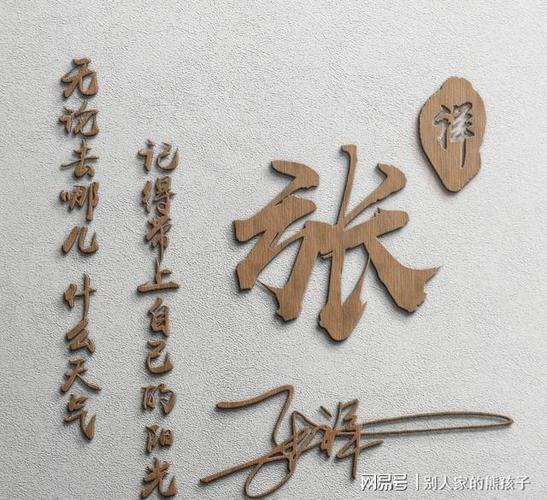 无论去哪儿 什么天气
记得带上自己的阳光
张
祥
张祥
网易号 | 别人家的熊孩子